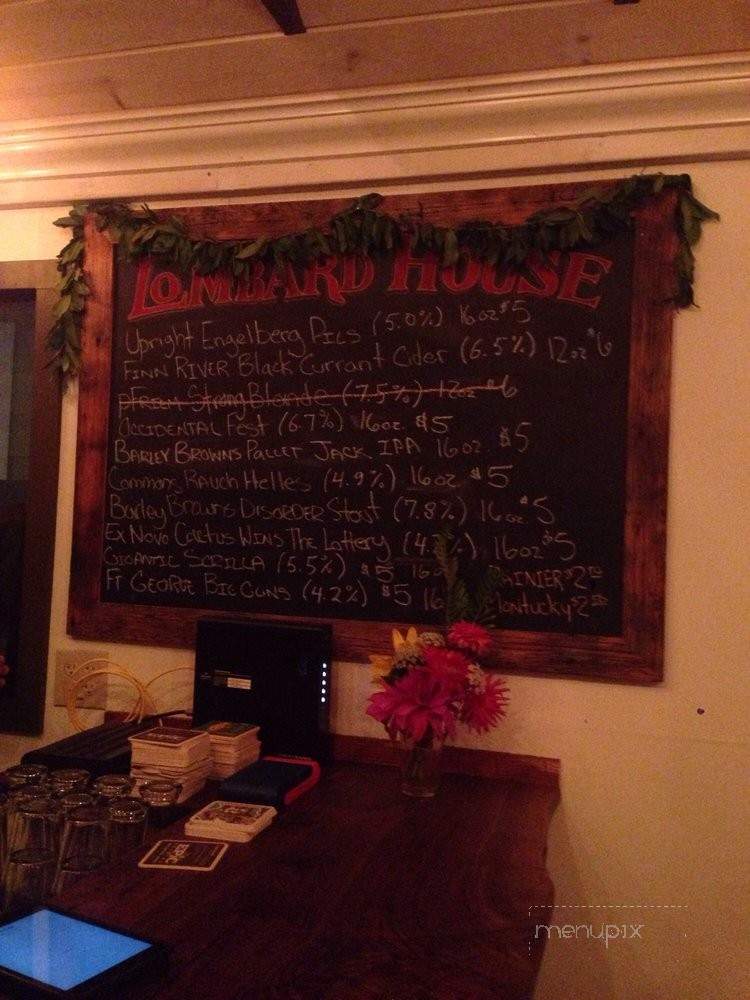 LOMBARD HOUSE
Upright Engelberg Pils (5.0%) 16oz $5
FINN RIVER Black Currant Cider (6.5%) 12oz $6
PFRIEM Strong Blonde (7.5%) 12oz $6
OCCIDENTAL Fest (6.7%) 16oz. $5
BARLEY BROWNS PALLET JACK IPA 16oz $5
Commons RAUCH Helles (4.9%) 16oz $5
Barley Browns DISORDER Stout (7.8%) 16oz. $5
EX NOVO CACTUS WINS THE Lottery (4. %) 16oz $5
GIGANTIC SCRILLA (5.5%) $5 16 RAINIER $2
FT GEORGE BIG GUNS (4.2%) $5 16 Montucky $2
menupix